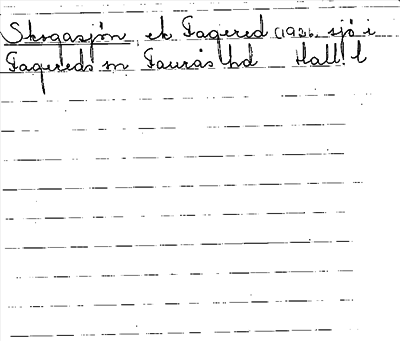 Skogasjön, ek Fagered (192. sjö i
Fagereds sn Faurås hd Hall. l